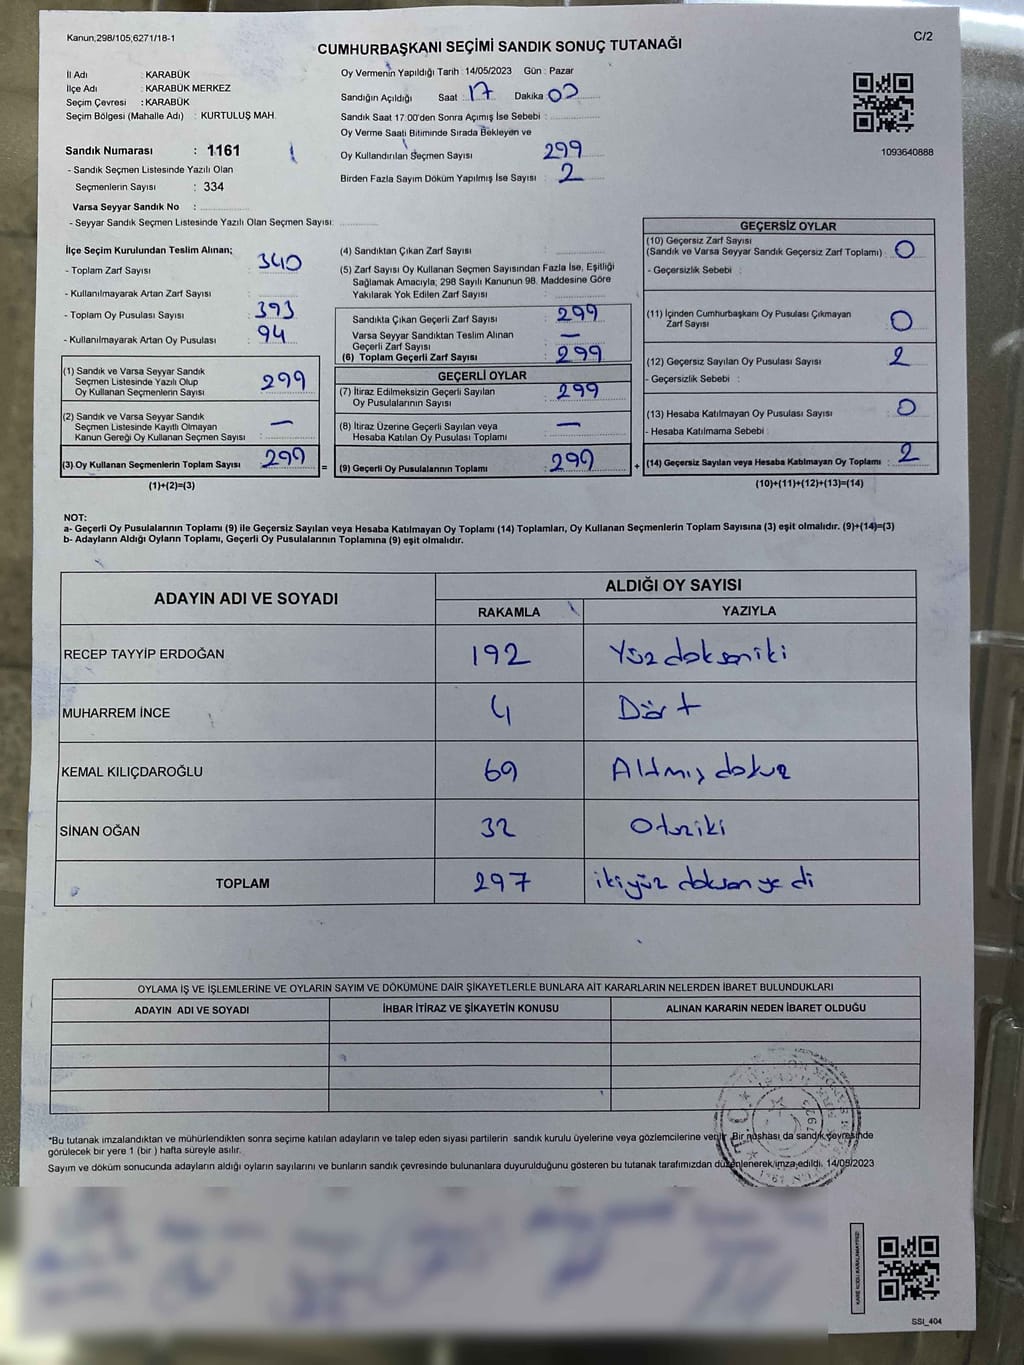 Kanun,298/105,6271/18-1
C/2
CUMHURBAŞKANI SEÇİMİ SANDIK SONUÇ TUTANAĞI
İl Adı : KARABÜK
İlçe Adı : KARABÜK MERKEZ
Seçim Çevresi : KARABÜK
Seçim Bölgesi (Mahalle Adı) : KURTULUŞ MAH.
Sandık Numarası : 1161
- Sandık Seçmen Listesinde Yazılı Olan
Seçmenlerin Sayısı : 334
Varsa Seyyar Sandık No :
- Seyyar Sandık Seçmen Listesinde Yazılı Olan Seçmen Sayısı:
Oy Vermenin Yapıldığı Tarih :14/05/2023 Gün : Pazar
Sandığın Açıldığı Saat : 17 Dakika : 00
Sandık Saat 17:00'den Sonra Açımış İse Sebebi :
Oy Verme Saati Bitiminde Sırada Bekleyen ve
Oy Kullandırılan Seçmen Sayısı : 299
Birden Fazla Sayım Döküm Yapılmış İse Sayısı : 2
1093640888
İlçe Seçim Kurulundan Teslim Alınan;
- Toplam Zarf Sayısı : 340
- Kullanılmayarak Artan Zarf Sayısı :
- Toplam Oy Pusulası Sayısı : 393
- Kullanılmayarak Artan Oy Pusulası : 94
(1) Sandık ve Varsa Seyyar Sandık
Seçmen Listesinde Yazılı Olup
Oy Kullanan Seçmenlerin Sayısı : 299
(2) Sandık ve Varsa Seyyar Sandık
Seçmen Listesinde Kayıtlı Olmayan
Kanun Gereği Oy Kullanan Seçmen Sayısı : —
(3) Oy Kullanan Seçmenlerin Toplam Sayısı : 299 =
(1)+(2)=(3)
(4) Sandıktan Çıkan Zarf Sayısı :
(5) Zarf Sayısı Oy Kullanan Seçmen Sayısından Fazla İse, Eşitliği
Sağlamak Amacıyla; 298 Sayılı Kanunun 98. Maddesine Göre
Yakılarak Yok Edilen Zarf Sayısı :
Sandıkta Çıkan Geçerli Zarf Sayısı : 299
Varsa Seyyar Sandıktan Teslim Alınan
Geçerli Zarf Sayısı : —
(6) Toplam Geçerli Zarf Sayısı : 299
GEÇERLİ OYLAR
(7) İtiraz Edilmeksizin Geçerli Sayılan
Oy Pusulalarının Sayısı : 299
(8) İtiraz Üzerine Geçerli Sayılan veya
Hesaba Katılan Oy Pusulası Toplamı : —
(9) Geçerli Oy Pusulalarının Toplamı : 299 +
GEÇERSİZ OYLAR
(10) Geçersiz Zarf Sayısı
(Sandık ve Varsa Seyyar Sandık Geçersiz Zarf Toplamı) : 0
- Geçersizlik Sebebi :
(11) İçinden Cumhurbaşkanı Oy Pusulası Çıkmayan
Zarf Sayısı : 0
(12) Geçersiz Sayılan Oy Pusulası Sayısı : 2
- Geçersizlik Sebebi :
(13) Hesaba Katılmayan Oy Pusulası Sayısı : 0
- Hesaba Katılmama Sebebi :
(14) Geçersiz Sayılan veya Hesaba Katılmayan Oy Toplamı : 2
(10)+(11)+(12)+(13)=(14)
NOT:
a- Geçerli Oy Pusulalarının Toplamı (9) ile Geçersiz Sayılan veya Hesaba Katılmayan Oy Toplamı (14) Toplamları, Oy Kullanan Seçmenlerin Toplam Sayısına (3) eşit olmalıdır. (9)+(14)=(3)
b- Adayların Aldığı Oyların Toplamı, Geçerli Oy Pusulalarının Toplamına (9) eşit olmalıdır.
ADAYIN ADI VE SOYADI
ALDIĞI OY SAYISI
RAKAMLA YAZIYLA
RECEP TAYYİP ERDOĞAN 192 Yüzdoksaniki
MUHARREM İNCE 4 Dört
KEMAL KILIÇDAROĞLU 69 Altmış dokuz
SİNAN OĞAN 32 Otuziki
TOPLAM 297 ikiyüz doksan yedi
OYLAMA İŞ VE İŞLEMLERİNE VE OYLARIN SAYIM VE DÖKÜMÜNE DAİR ŞİKAYETLERLE BUNLARA AİT KARARLARIN NELERDEN İBARET BULUNDUKLARI
ADAYIN ADI VE SOYADI İHBAR İTİRAZ VE ŞİKAYETİN KONUSU ALINAN KARARIN NEDEN İBARET OLDUĞU
*Bu tutanak imzalandıktan ve mühürlendikten sonra seçime katılan adayların ve talep eden siyasi partilerin sandık kurulu üyelerine veya gözlemcilerine verilir. Bir nüshası da sandık çevresinde
görülecek bir yere 1 (bir ) hafta süreyle asılır.
Sayım ve döküm sonucunda adayların aldığı oyların sayılarını ve bunların sandık çevresinde bulunanlara duyurulduğunu gösteren bu tutanak tarafımızdan düzenlenerek imza edildi. 14/05/2023
T.C.
SSI_404